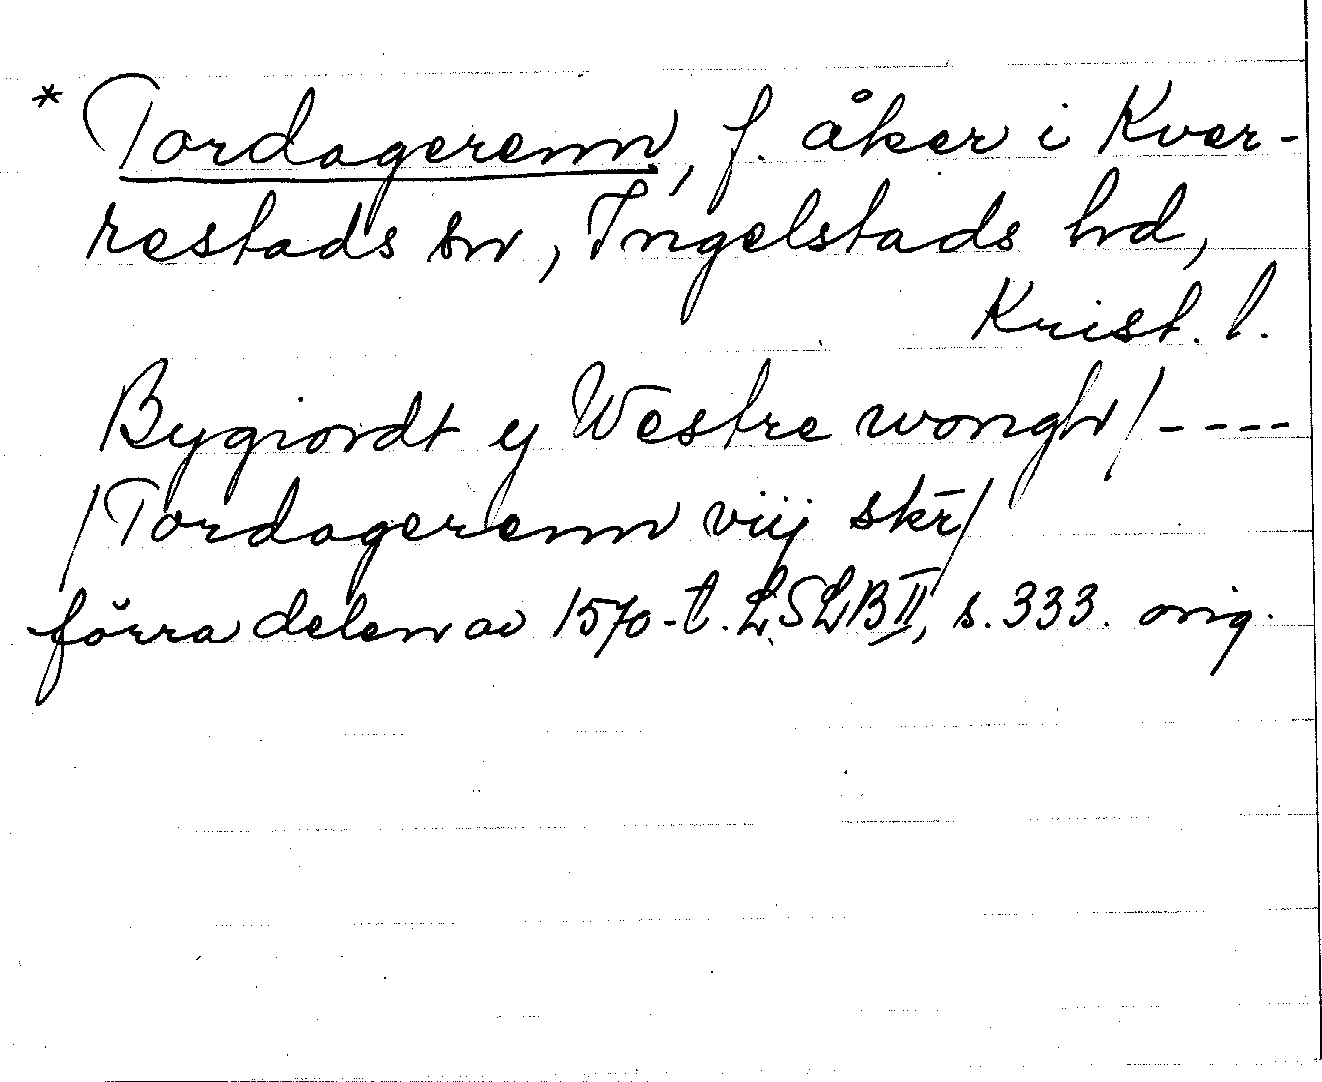 * Tordagerenn, f. åker i Kver-
restads sn, Ingelstads hd,
Krist. l.
Bygiordt y Westre wongh/----
/Tordagerenn viij skr̄/
förra delen av 1570-t. LSLB II, s. 333. orig.